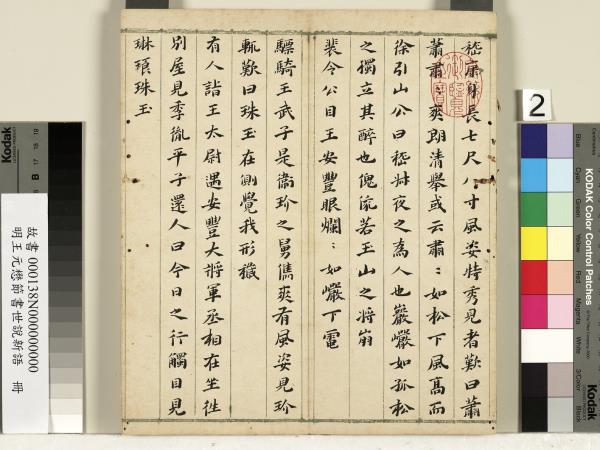 嵇康身長七尺八寸風姿特秀見者歎曰蕭
蕭肅〻爽朗清舉或云肅〻如松下風高而
徐引山公曰嵇叔夜之為人也巖巖如孤松
之獨立其醉也傀俄若玉山之將崩
裴令公目王安豐眼爛〻如巖下電
驃騎王武子是衞玠之舅儁爽有風姿見玠
輒歎曰珠玉在側覺我形穢
有人詣王太尉遇安豐大將軍丞相在坐往
別屋見季胤平子還人曰今日之行觸目見
琳琅珠玉
故書 000138N000000000
明王元懋節書世說新語 冊
2
Kodak
B
KODAK Color Control Patches
Blue
Cyan
Green
Yellow
Red
Magenta
White
3/Color
Black
Kodak